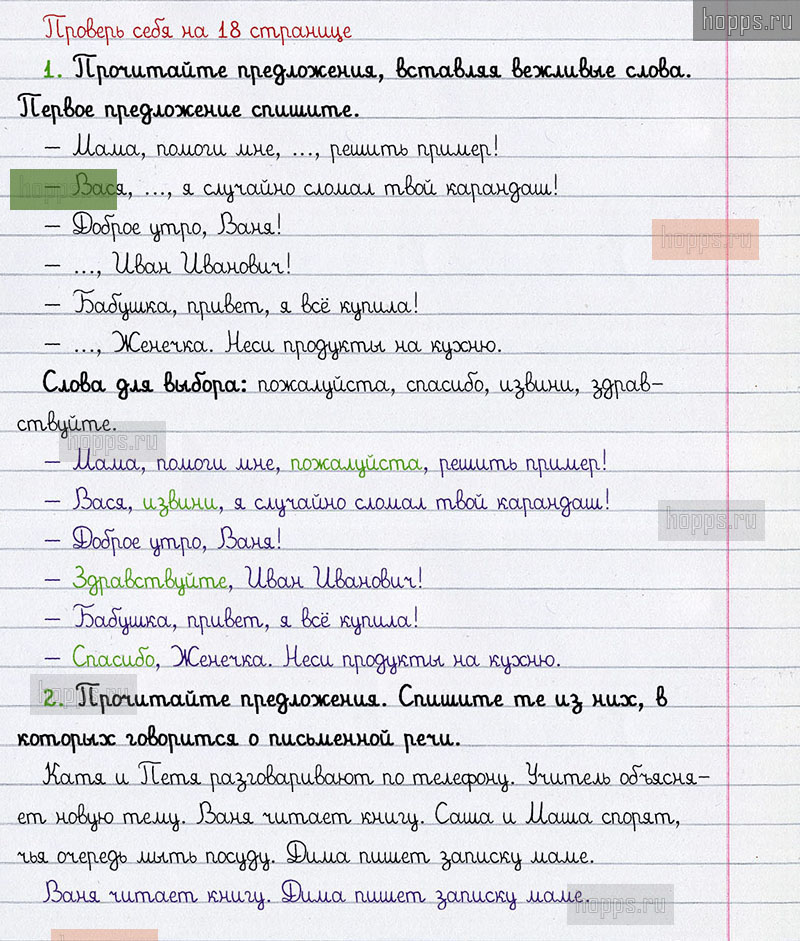 hopps.ru
Проверь себя на 18 странице
1. Прочитайте предложения, вставляя вежливые слова.
Первое предложение спишите.
– Мама, помоги мне, ..., решить пример!
– Вася, ..., я случайно сломал твой карандаш!
– Доброе утро, Ваня!
– ..., Иван Иванович!
hopps.ru
– Бабушка, привет, я всё купила!
– ..., Женечка. Неси продукты на кухню.
Слова для выбора: пожалуйста, спасибо, извини, здрав-
ствуйте.
hopps.ru
– Мама, помоги мне, пожалуйста, решить пример!
– Вася, извини, я случайно сломал твой карандаш!
hopps.ru
– Доброе утро, Ваня!
– Здравствуйте, Иван Иванович!
– Бабушка, привет, я всё купила!
– Спасибо, Женечка. Неси продукты на кухню.
2. Прочитайте предложения. Спишите те из них, в
которых говорится о письменной речи.
Катя и Петя разговаривают по телефону. Учитель объясня-
ет новую тему. Ваня читает книгу. Саша и Маша спорят,
чья очередь мыть посуду. Дима пишет записку маме.
Ваня читает книгу. Дима пишет записку маме.
hopps.ru